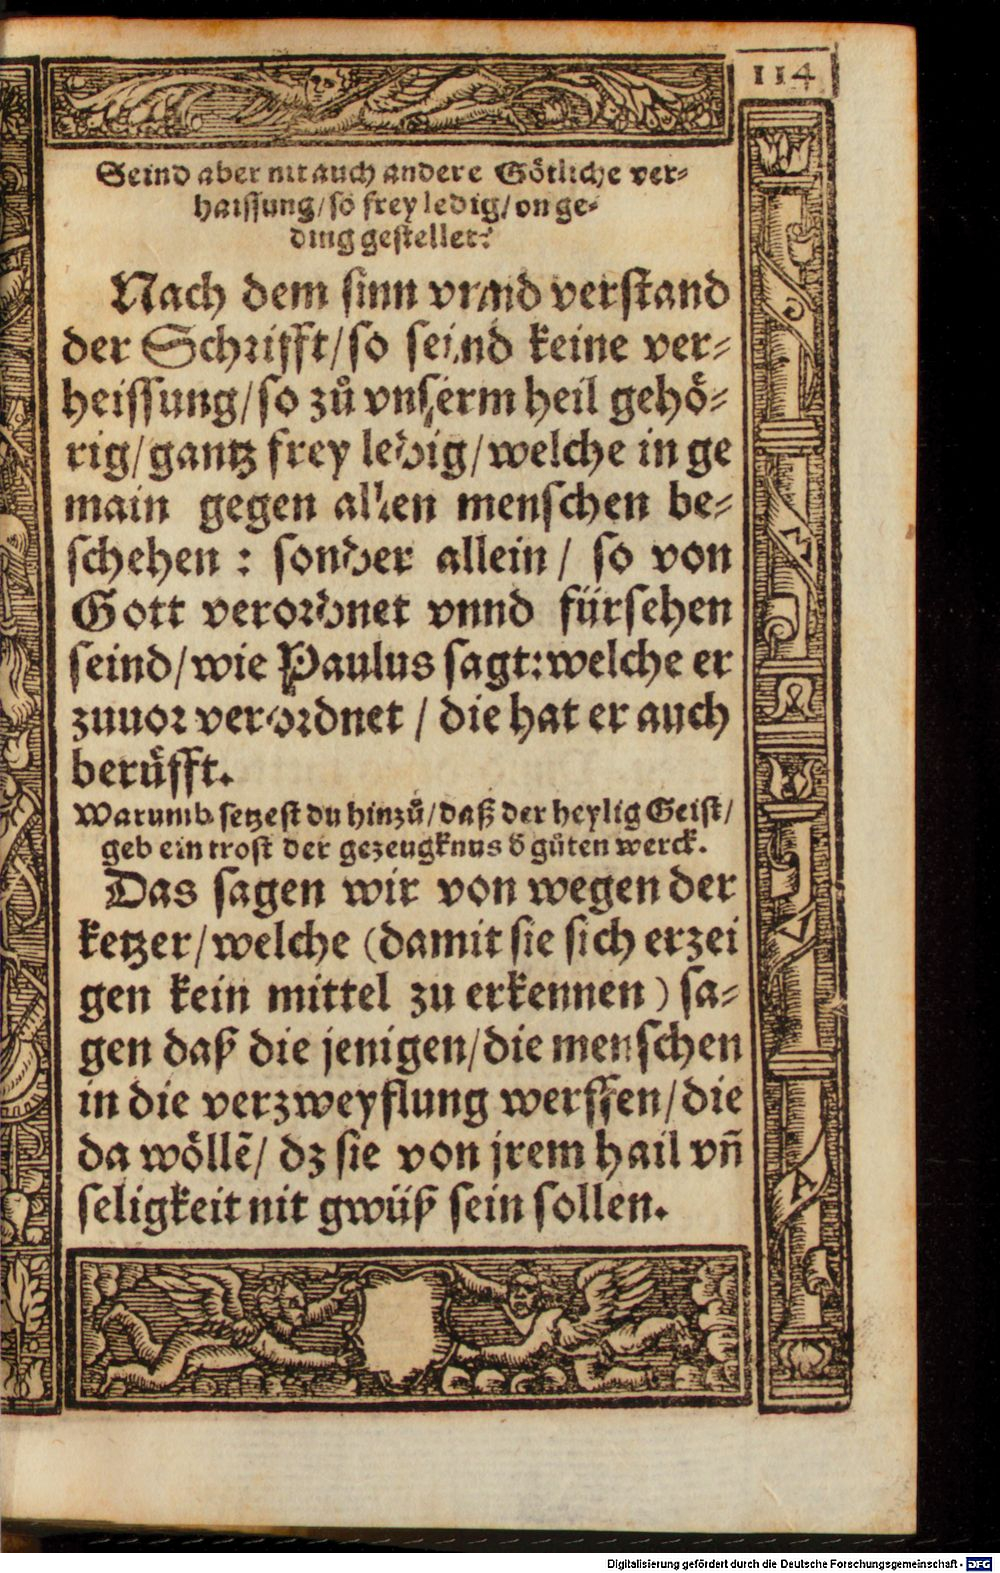 114
Seind aber nit auch andere Götliche ver⸗
haissung/so frey ledig/on ge⸗
ding gestellet?
Nach dem sinn vnnd verstand
der Schrifft/so seind keine ver⸗
heissung/so zů vnserm heil gehö⸗
rig/gantz frey ledig/welche in ge
main gegen allen menschen be⸗
schehen : sonder allein / so von
Gott verordnet vnnd fürsehen
seind/wie Paulus sagt: welche er
zuuor verordnet / die hat er auch
berüfft.
Warumb setzest du hinzů/daß der heylig Geist/
geb ein trost der gezeugknus d̄ gůten werck.
Das sagen wir von wegen der
ketzer/welche (damit sie sich erzei
gen kein mittel zu erkennen) sa⸗
gen daß die jenigen/die menschen
in die verzweyflung werffen/die
da wöllē/ dz sie von jrem hail vñ
seligkeit nit gwüß sein sollen.
Digitalisierung gefördert durch die Deutsche Forschungsgemeinschaft - DFG